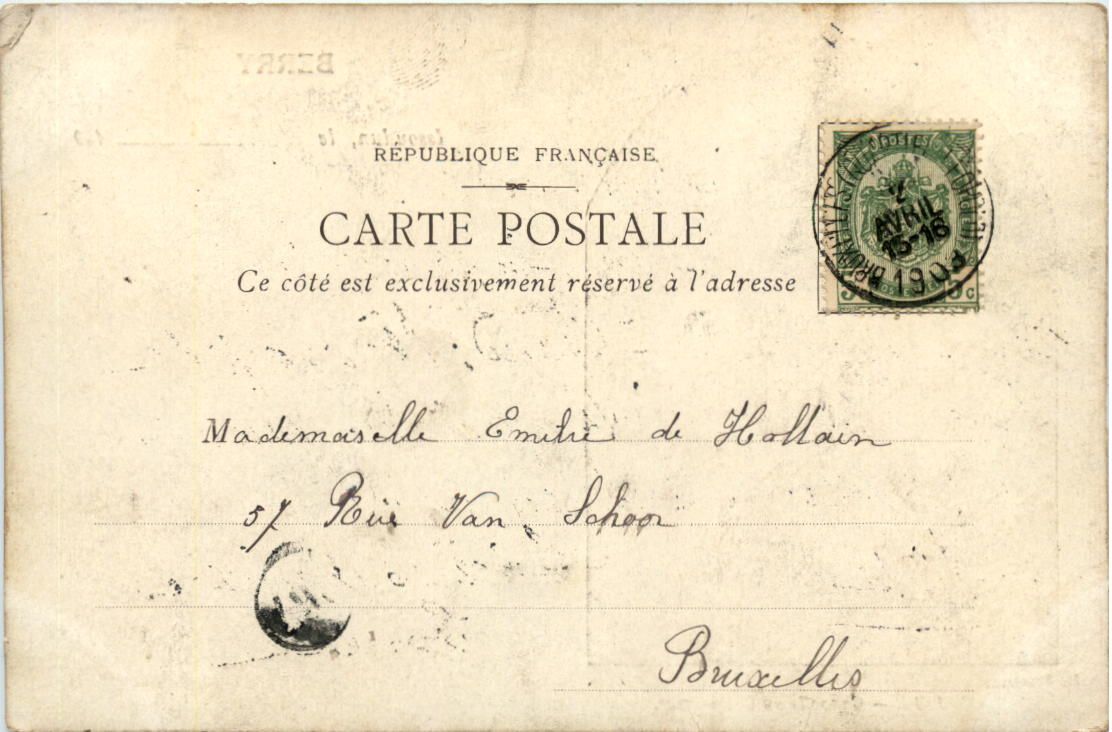 BERRY
RÉPUBLIQUE FRANÇAISE
CARTE POSTALE
Ce côté est exclusivement réservé à l'adresse
2
AVRIL
15-16
1903
Mademoiselle Emilie de Hollain
57 Rue Van Schoor
Bruxelles